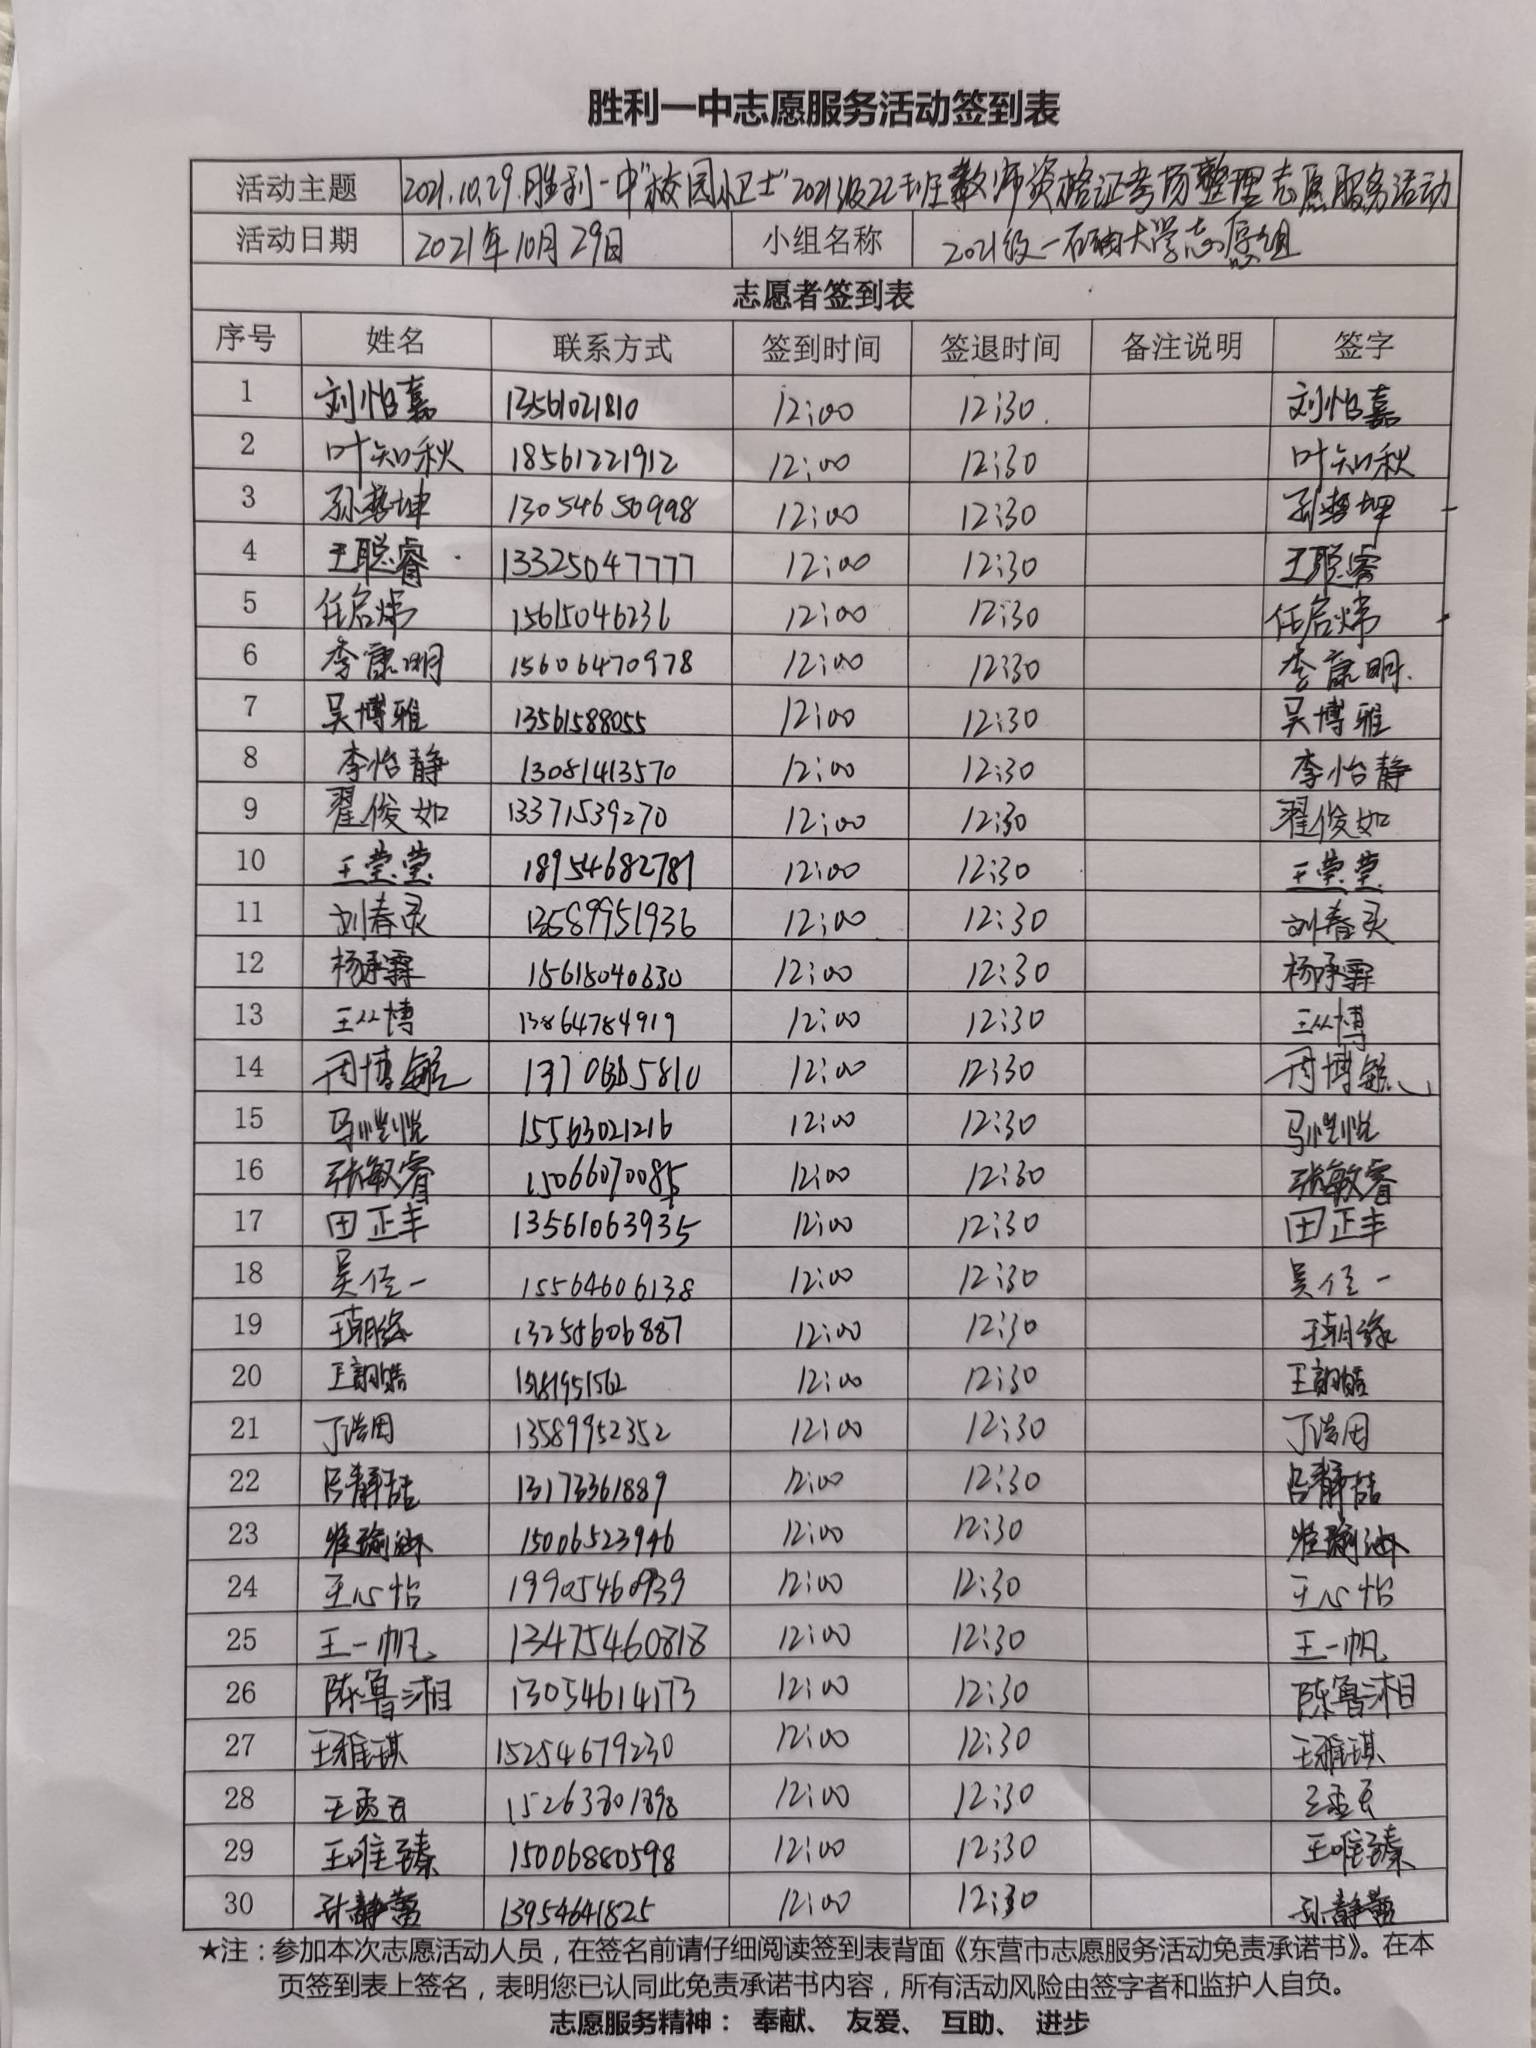 胜利一中志愿服务活动签到表
活动主题 2021.10.29.胜利一中"校园小卫士"2021级22班教师资格证考场整理志愿服务活动
活动日期 2021年10月29日 小组名称 2021级一石油大学志愿组
志愿者签到表
序号 姓名 联系方式 签到时间 签退时间 备注说明 签字
1 刘怡嘉 13561021810 12:00 12:30 刘怡嘉
2 叶知秋 18561221912 12:00 12:30 叶知秋
3 孙梦坤 13054650998 12:00 12:30 孙梦坤
4 王聪睿 13325047777 12:00 12:30 王聪睿
5 任启炜 15615046236 12:00 12:30 任启炜
6 李康明 15606470978 12:00 12:30 李康明
7 吴博雅 13561588055 12:00 12:30 吴博雅
8 李怡静 13081413570 12:00 12:30 李怡静
9 翟俊如 13371539270 12:00 12:30 翟俊如
10 王莹莹 18954682781 12:00 12:30 王莹莹
11 刘春灵 13589951936 12:00 12:30 刘春灵
12 杨承霖 15615040630 12:00 12:30 杨承霖
13 王从博 13864784919 12:00 12:30 王从博
14 周博毓 12:00 12:30 周博毓
15 马恺悦 15563021216 12:00 12:30 马恺悦
16 张敏睿 15066070085 12:00 12:30 张敏睿
17 田正丰 13561063935 12:00 12:30 田正丰
18 吴佳一 15564606138 12:00 12:30 吴佳一
19 王朝缘 13255606887 12:00 12:30 王朝缘
20 12:00 12:30
21 丁浩因 13589952352 12:00 12:30 丁浩因
22 吕静喆 13173361889 12:00 12:30 吕静喆
23 崔瑜涵 15006523946 12:00 12:30 崔瑜涵
24 王心怡 19905460939 12:00 12:30 王心怡
25 王一帆 13475460818 12:00 12:30 王一帆
26 陈鲁湘 13054614173 12:00 12:30 陈鲁湘
27 王雅琪 15254679230 12:00 12:30 王雅琪
28 15263801898 12:00 12:30
29 王唯臻 15006880598 12:00 12:30 王唯臻
30 孙静蕾 13954641825 12:00 12:30 孙静蕾
★注：参加本次志愿活动人员，在签名前请仔细阅读签到表背面《东营市志愿服务活动免责承诺书》。在本
页签到表上签名，表明您已认同此免责承诺书内容，所有活动风险由签字者和监护人自负。
志愿服务精神： 奉献、 友爱、 互助、 进步